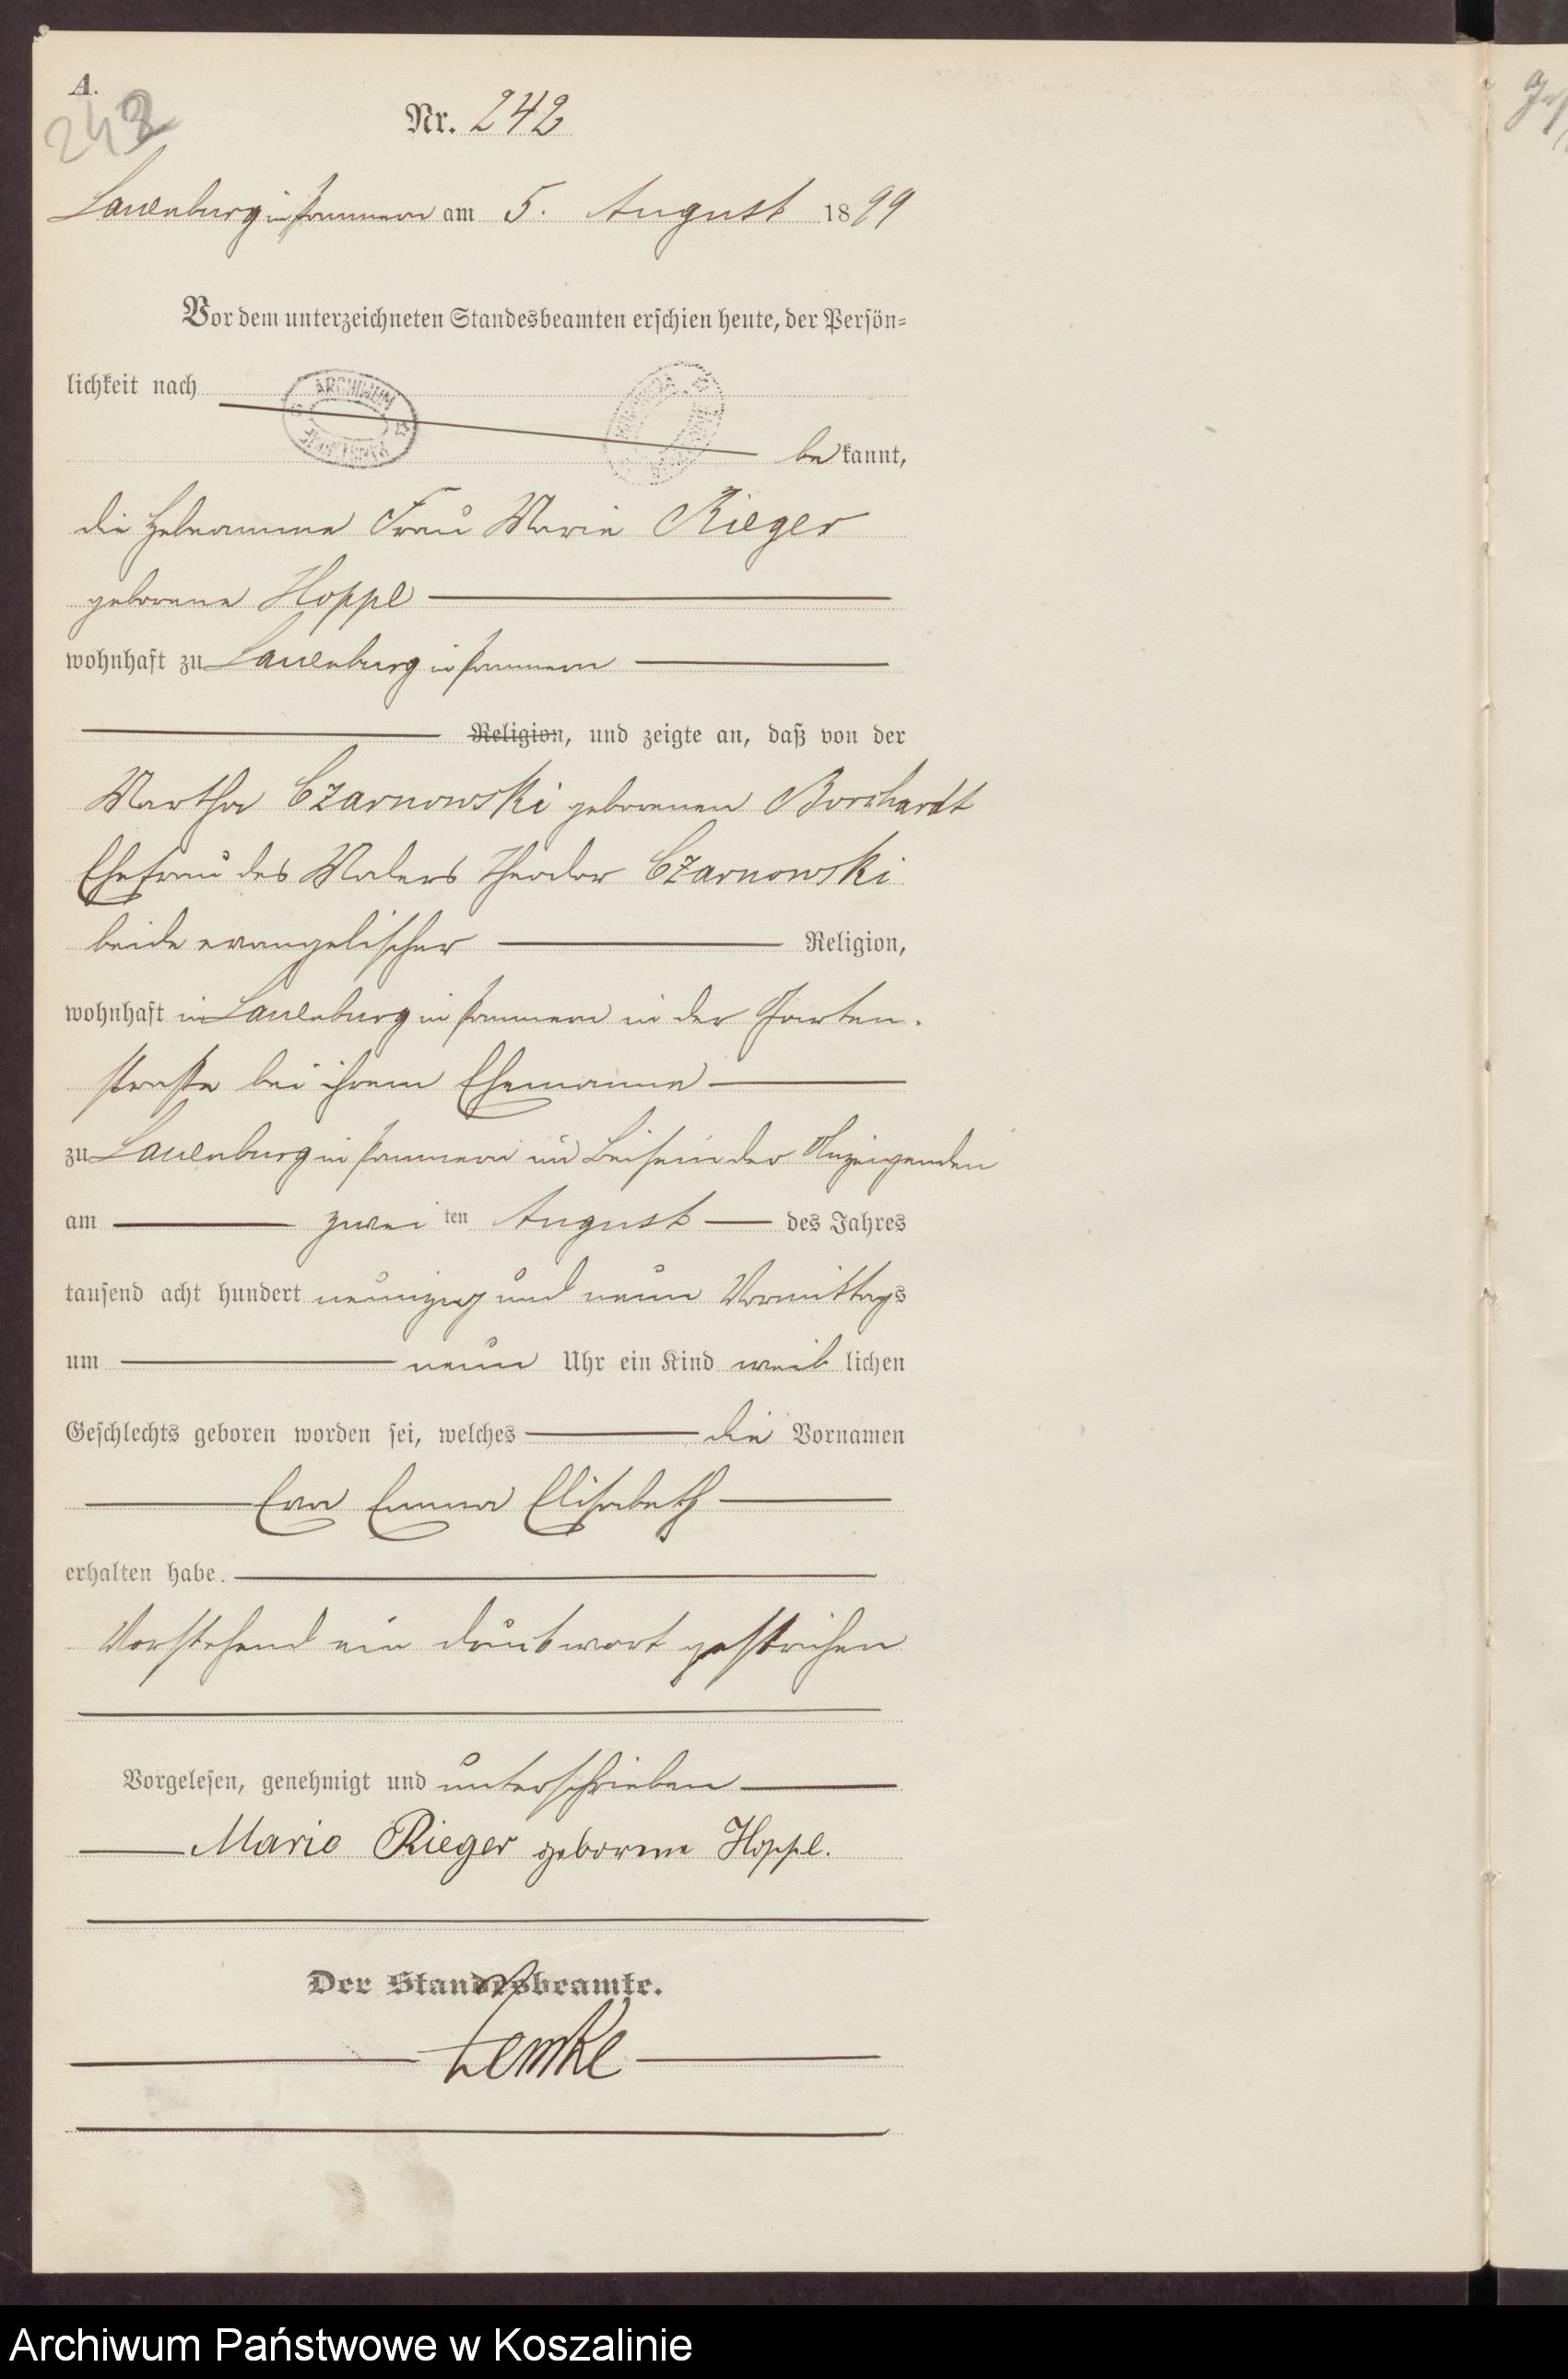 A.
242
Nr. 242
Lauenburg in Pommern am 5. August 1899
Vor dem unterzeichneten Standesbeamten erschien heute, der Persön-
lichkeit nach
ARCHIWUM
be kannt,
die Hebeamme Frau Marie Rieger
geborene Hoppe
wohnhaft zu Lauenburg in Pommern
Religion, und zeigte an, daß von der
Martha Czarnowski geborenen Borchardt
Ehefrau des Malers Theodor Czarnowski
beide evangelischer Religion,
wohnhaft in Lauenburg in Pommern in der Garten-
straße bei ihrem Ehemanne
zu Lauenburg in Pommern in Beisein der Anzeigenden
am zwei ten August des Jahres
tausend acht hundert neunzig und neun Vormittags
um neun Uhr ein Kind weib lichen
Geschlechts geboren worden sei, welches die Vornamen
Eva Emma Elisabeth
erhalten habe.
Vorstehend ein Druckwort gestrichen
Vorgelesen, genehmigt und unterschrieben
Marie Rieger geborene Hoppe.
Der Standesbeamte.
Lemke
Archiwum Państwowe w Koszalinie